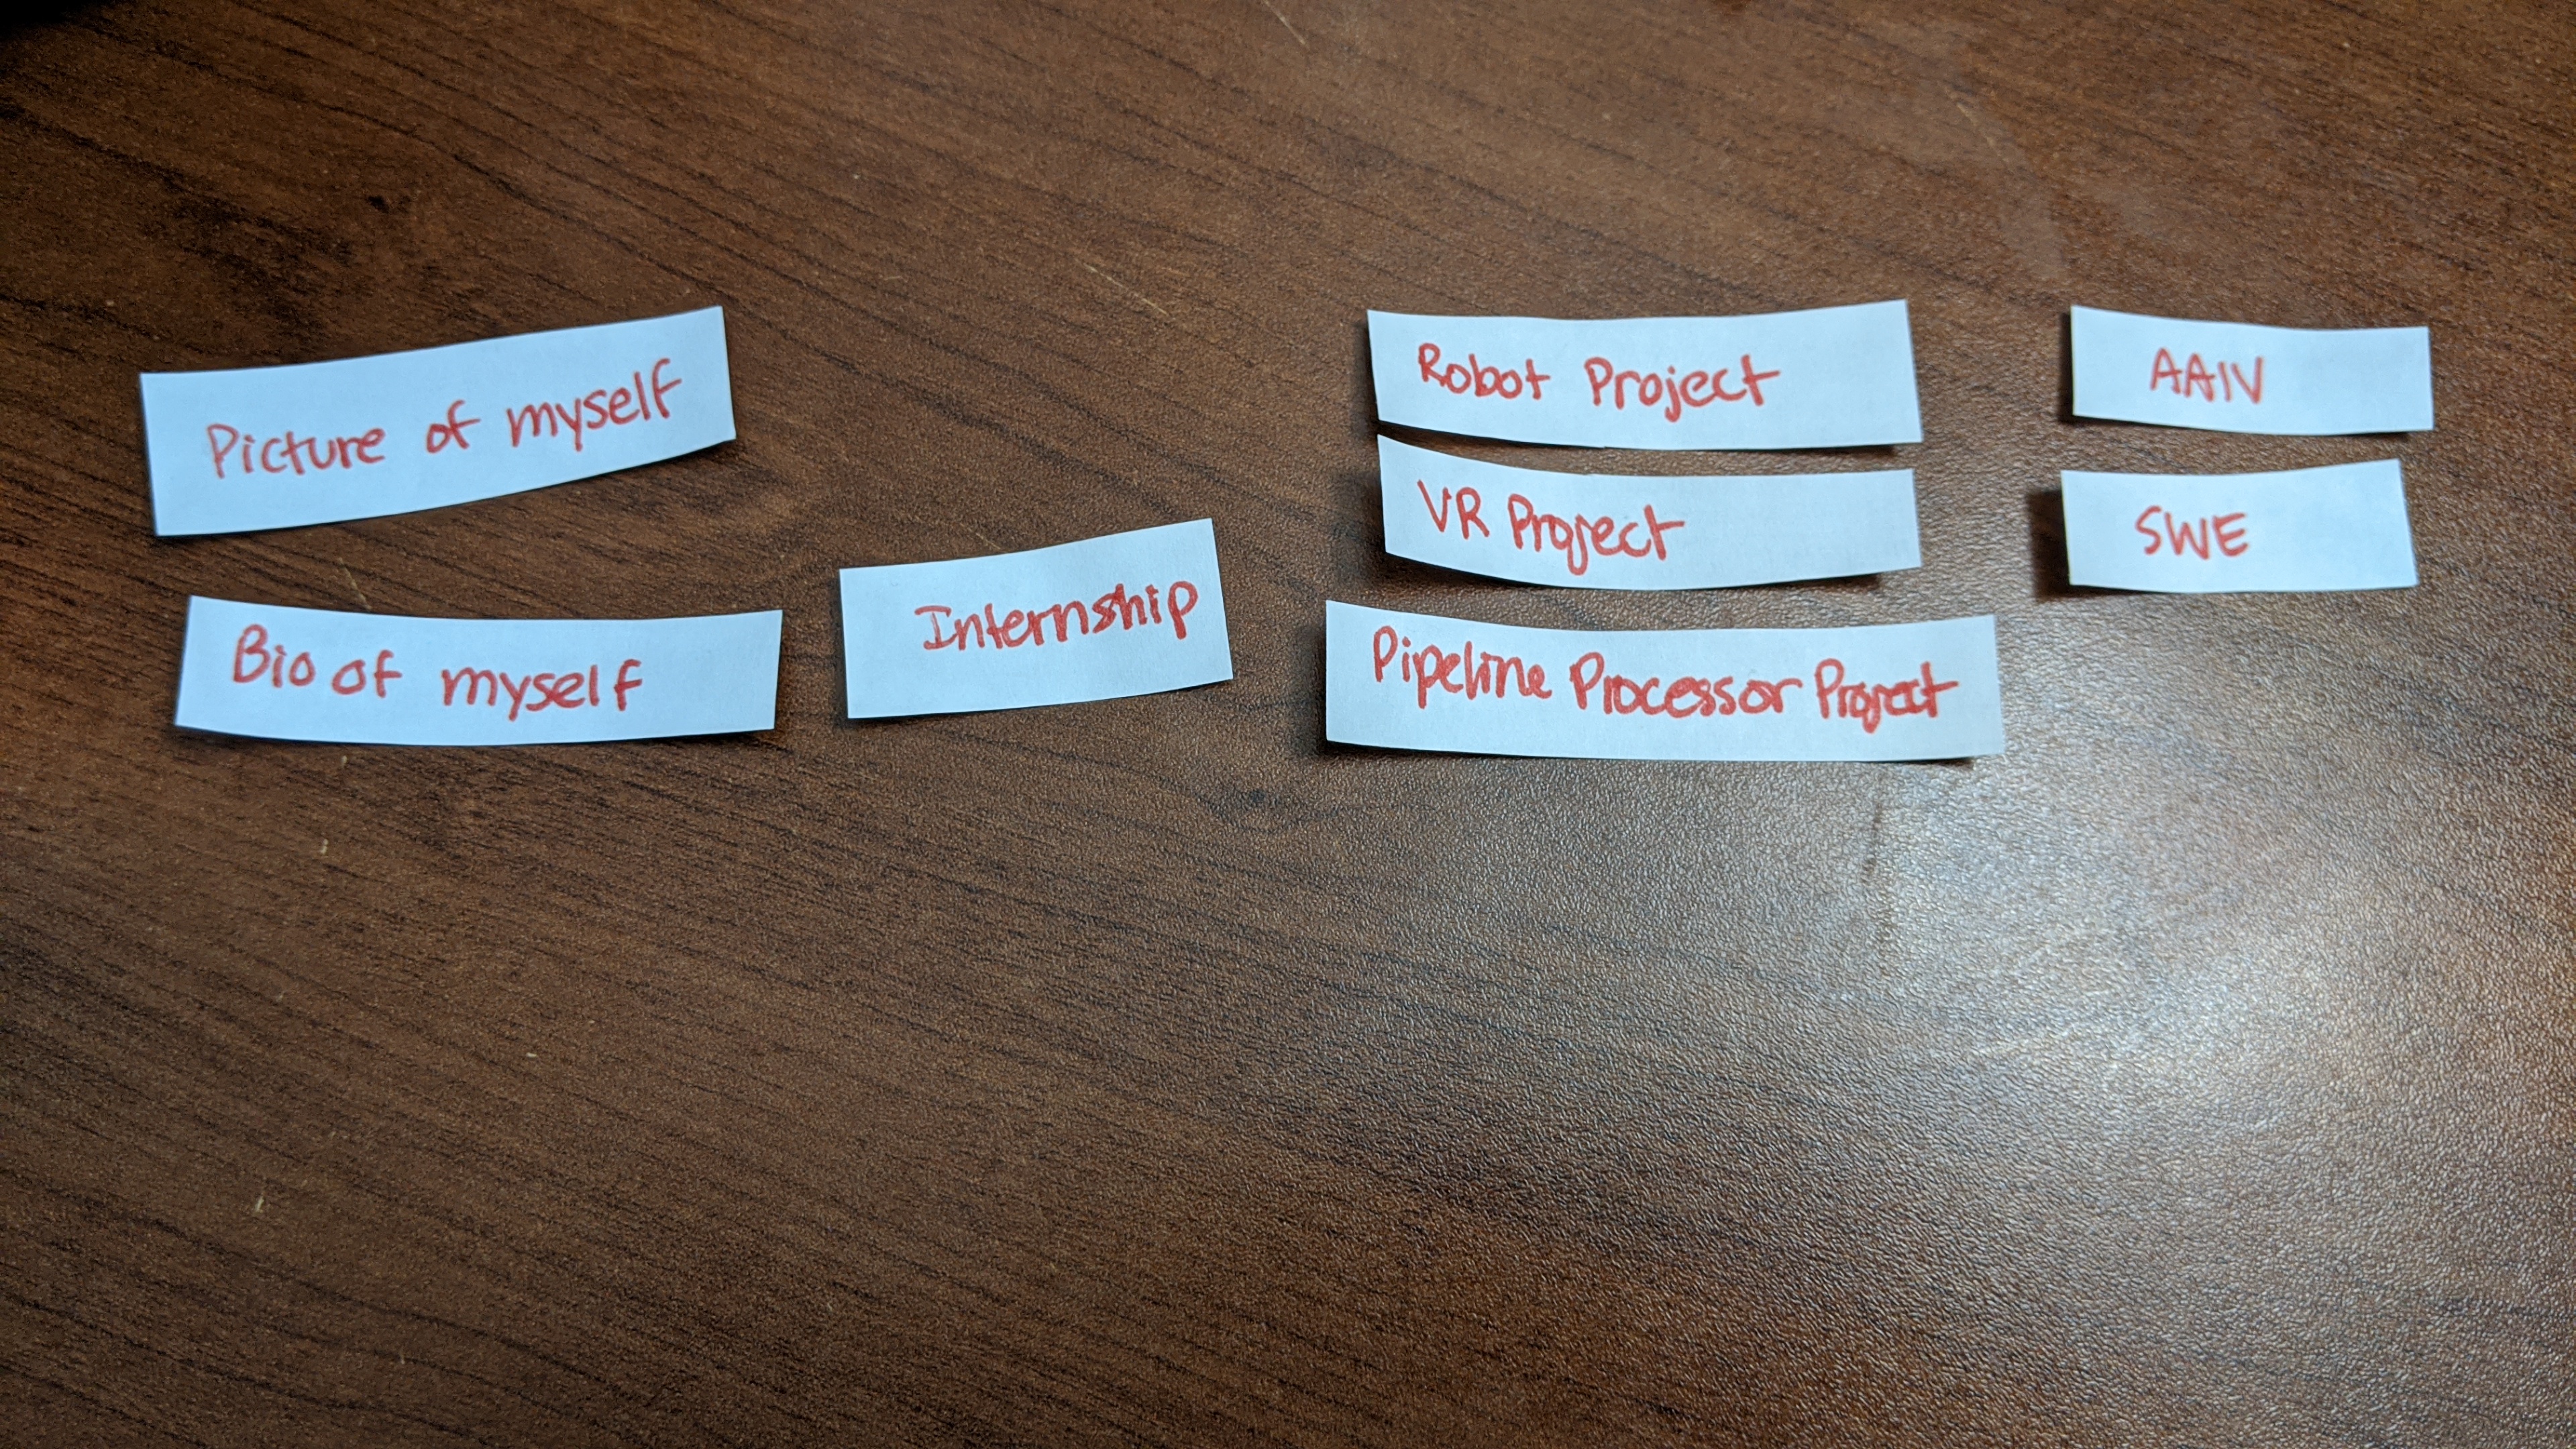 Picture of myself
Bio of myself
Internship
Robot Project
VR Project
Pipeline Processor Project
AAIV
SWE